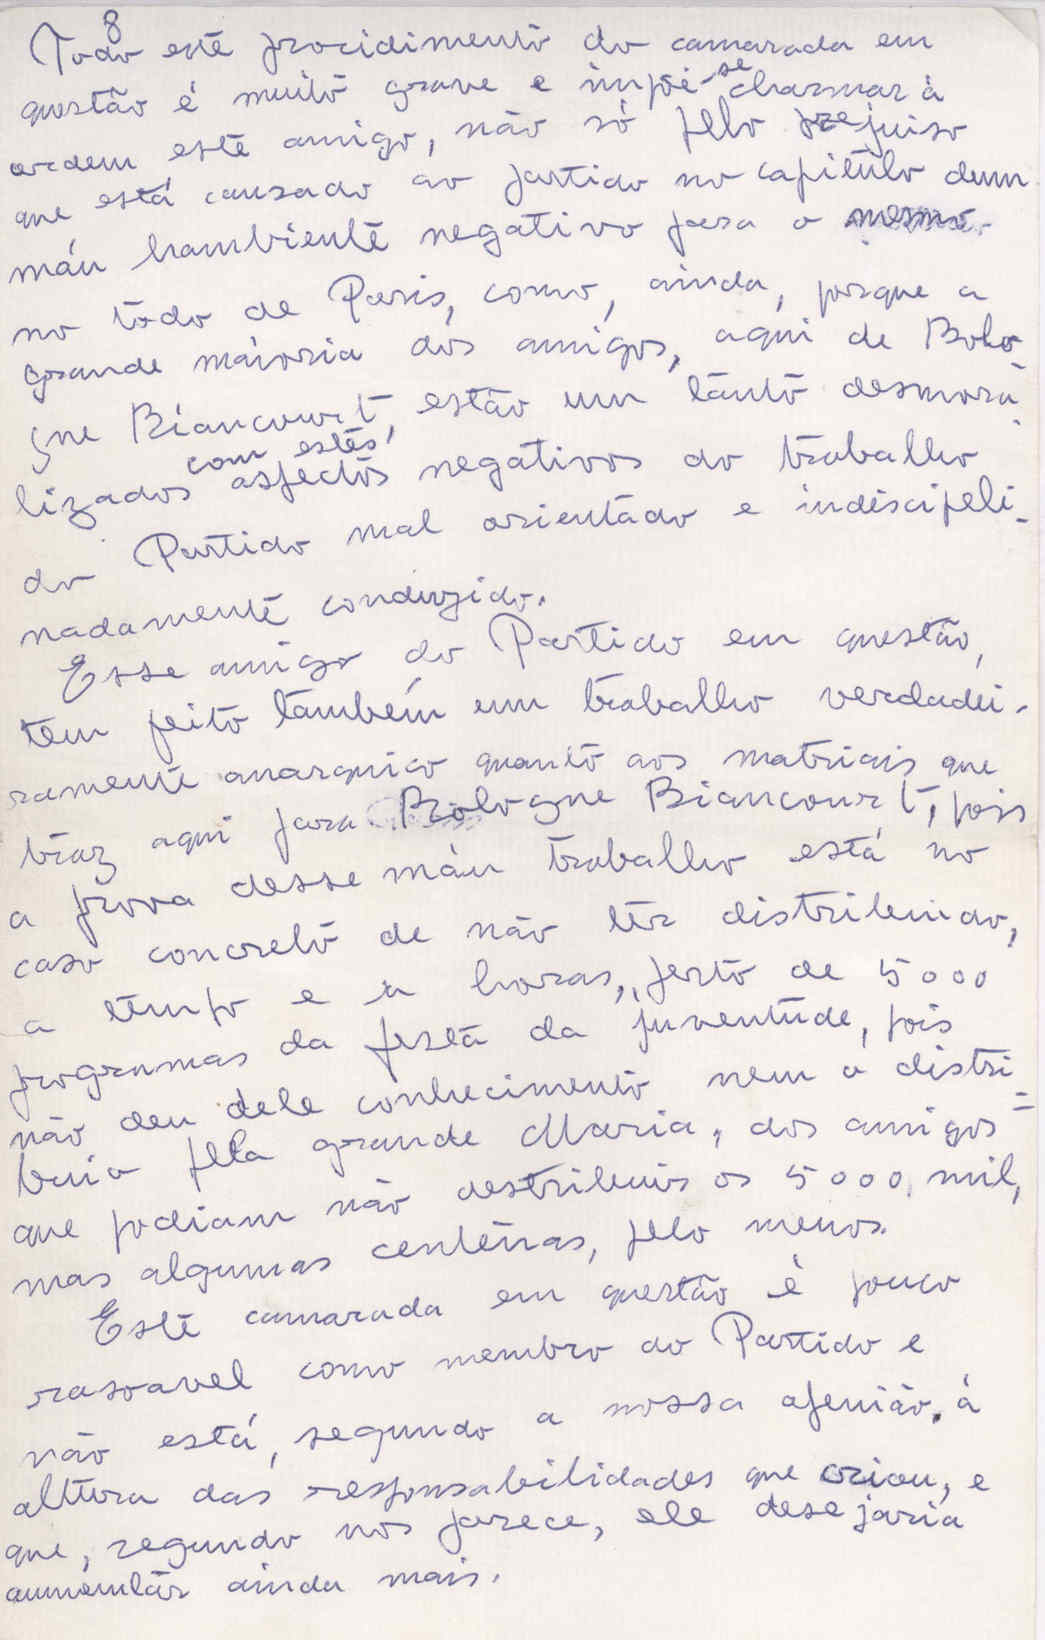 8
Todo este procidimento do camarada em
questão é muito grave e impõe-se chamar à
ordem este amigo, não só pelo prejuiso
que está causado ao partido no capitulo dum
máu hambiente negativo para o mesmo.
no todo de Paris, como, ainda, porque a
grande máioria dos amigos, aqui de Bolo-
gne Biancourt, estão um tanto desmora-
lizados com estes aspectos negativos do traballho
do Partido mal orientado e indiscipli-
nadamente conduzido.
Esse amigo do Partido em questão,
tem feito também um traballho verdadei-
ramente anarquico quanto aos matriais que
traz aqui para Bologne Biancourt, pois
a prova desse máu traballho está no
caso concreto de não ter distribuido,
a tempo e a horas, perto de 5000
programas da festa da juventude, pois
não deu dele conhecimento nem o distri=
buio pela grande Maria, dos amigos
que podiam não destribuir os 5000, mil,
mas algumas centenas, pelo menos.
Este camarada em questão é pouco
rasoavel como membro do Partido e
não está, segundo a nossa openião, à
altura das responsabilidades que criou, e
que, segundo nos parece, ele desejaria
aumentar ainda mais.